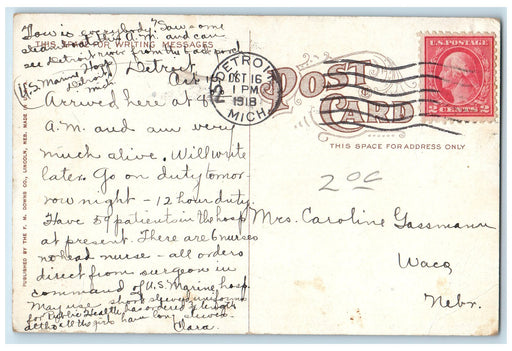 "How is everybody?" Saw some
clear out this A.M. and can
THIS SPACE FOR WRITING MESSAGES
see Detroit river from the back porch
U.S. Marine Hosp
Detroit
Mich
Detroit
Oct 16
Arrived here at 8
A.M. and am very
much alive. Will write
later. Go on duty tomor-
row night - 12 hour duty.
Have 59 patients in the hosp
at present. There are 6 nurses
no head nurse - all orders
direct from surgeon in
command of U.S. Marine hosp.
May use short sleeved uniforms
for Public Health, has ordered ¾ length
altho all the girls have long sleeves.
Clara.
PUBLISHED BY THE F. M. DOWNS CO., LINCOLN, NEB. MADE IN
DETROIT
OCT 16
1 PM
1918
MICH.
POST
CARD
U.S. POSTAGE
2 CENTS 2
THIS SPACE FOR ADDRESS ONLY
200
Mrs. Caroline Gassmann
Waco
Nebr.